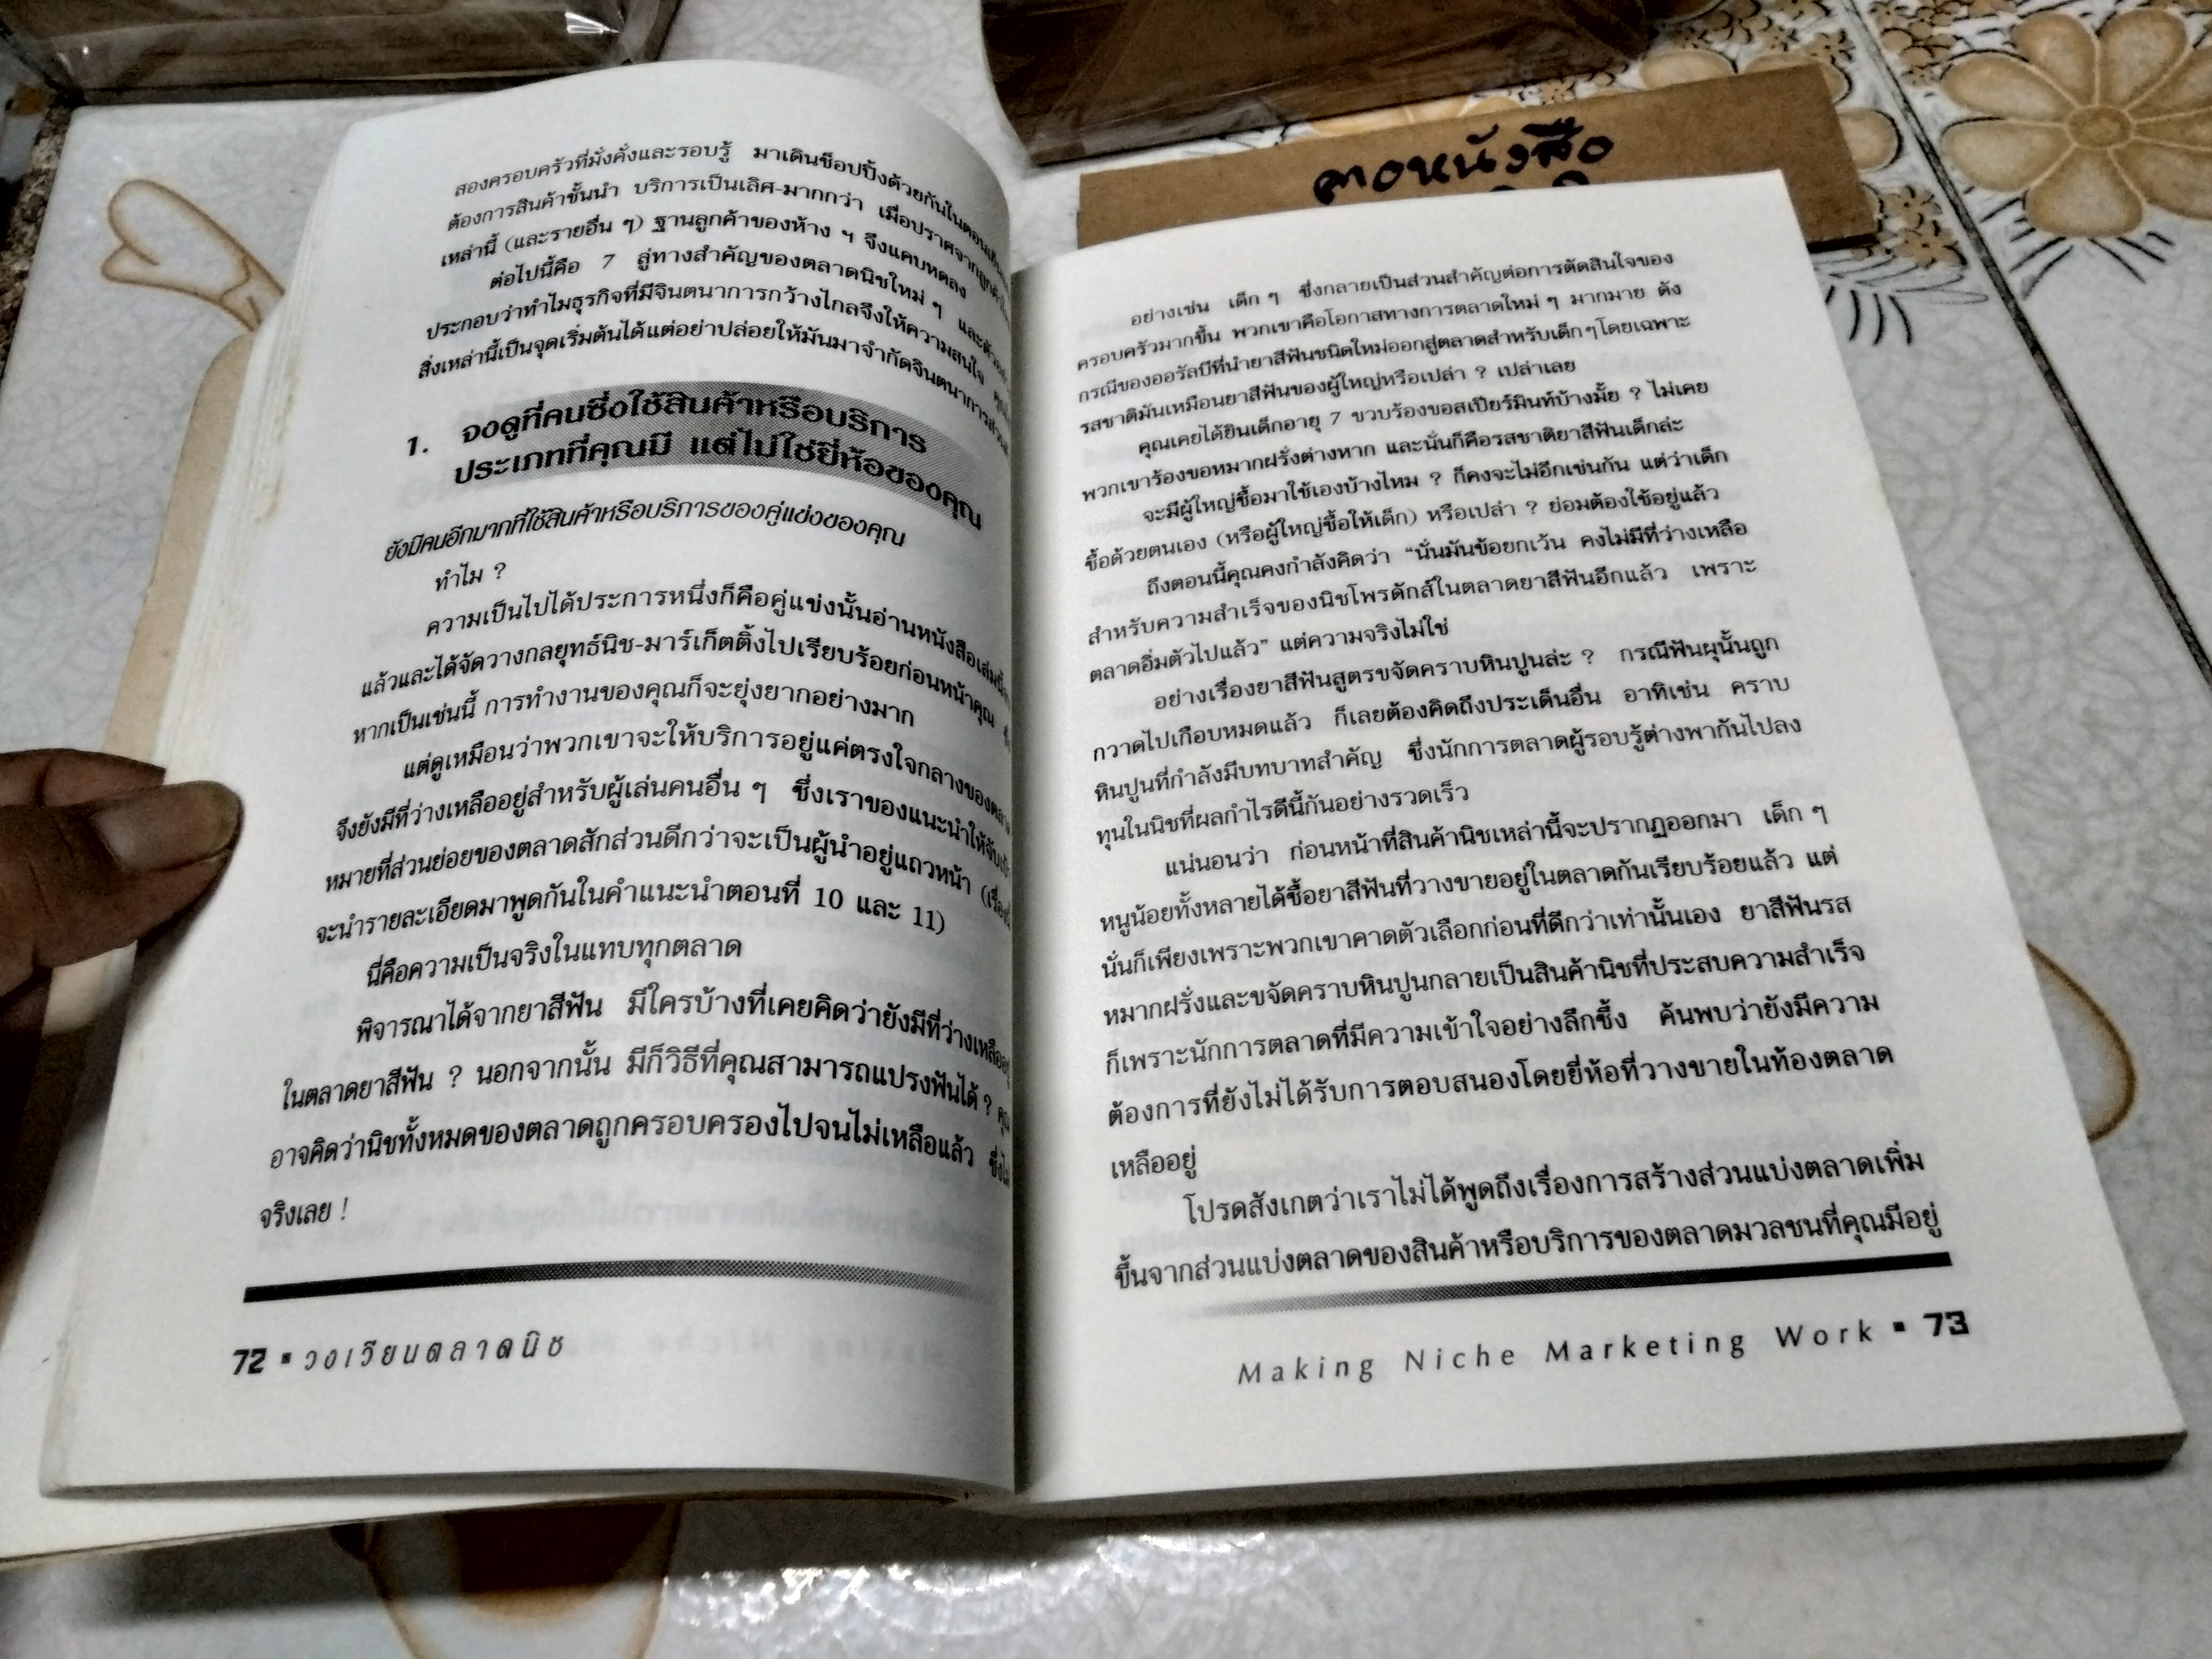 สองครอบครัวที่มั่งคั่งและรอบรู้ มาเดินช็อปปิ้งด้วยกันในตอนเย็น
ต้องการสินค้าชั้นนำ บริการเป็นเลิศ-มากกว่า เมื่อปราศจากลูกค้า
เหล่านี้ (และรายอื่น ๆ) ฐานลูกค้าของห้าง ฯ จึงแคบหดลง
ต่อไปนี้คือ 7 ลู่ทางสำคัญของตลาดนิชใหม่ ๆ
ประกอบว่าทำไมธุรกิจที่มีจินตนาการกว้างไกลจึงให้ความสนใจ
สิ่งเหล่านี้เป็นจุดเริ่มต้นได้แต่อย่าปล่อยให้มันมาจำกัดจินตนาการส่วนตัว
1. จงดูที่คนซึ่งใช้สินค้าหรือบริการ
ประเภทที่คุณมี แต่ไม่ใช่ยี่ห้อของคุณ
ยังมีคนอีกมากที่ใช้สินค้าหรือบริการของคู่แข่งของคุณ
ทำไม ?
ความเป็นไปได้ประการหนึ่งก็คือคู่แข่งนั้นอ่านหนังสือเล่มนี้
แล้วและได้จัดวางกลยุทธ์นิช-มาร์เก็ตติ้งไปเรียบร้อยก่อนหน้าคุณ
หากเป็นเช่นนี้ การทำงานของคุณก็จะยุ่งยากอย่างมาก
แต่ดูเหมือนว่าพวกเขาจะให้บริการอยู่แค่ตรงใจกลางของตลาด
จึงยังมีที่ว่างเหลืออยู่สำหรับผู้เล่นคนอื่น ๆ ซึ่งเราขอแนะนำให้จับ
หมายที่ส่วนย่อยของตลาดสักส่วนดีกว่าจะเป็นผู้นำอยู่แถวหน้า
จะนำรายละเอียดมาพูดกันในคำแนะนำตอนที่ 10 และ 11)
นี่คือความเป็นจริงในแทบทุกตลาด
พิจารณาได้จากยาสีฟัน มีใครบ้างที่เคยคิดว่ายังมีที่ว่างเหลืออยู่
ในตลาดยาสีฟัน ? นอกจากนั้น มีกี่วิธีที่คุณสามารถแปรงฟันได้ ? คุณ
อาจคิดว่านิชทั้งหมดของตลาดถูกครอบครองไปจนไม่เหลือแล้ว ซึ่งไม่
จริงเลย !
72 ▪ วงเวียนตลาดนิช
คอหนังสือ
อย่างเช่น เด็ก ๆ ซึ่งกลายเป็นส่วนสำคัญต่อการตัดสินใจของ
ครอบครัวมากขึ้น พวกเขาคือโอกาสทางการตลาดใหม่ ๆ มากมาย ดัง
กรณีของออรัลบีที่นำยาสีฟันชนิดใหม่ออกสู่ตลาดสำหรับเด็กๆโดยเฉพาะ
รสชาติมันเหมือนยาสีฟันของผู้ใหญ่หรือเปล่า ? เปล่าเลย
คุณเคยได้ยินเด็กอายุ 7 ขวบร้องขอสเปียร์มินท์บ้างมั้ย ? ไม่เคย
พวกเขาร้องขอหมากฝรั่งต่างหาก และนั่นก็คือรสชาติยาสีฟันเด็กล่ะ
จะมีผู้ใหญ่ซื้อมาใช้เองบ้างไหม ? ก็คงจะไม่อีกเช่นกัน แต่ว่าเด็ก
ซื้อด้วยตนเอง (หรือผู้ใหญ่ซื้อให้เด็ก) หรือเปล่า ? ย่อมต้องใช้อยู่แล้ว
ถึงตอนนี้คุณคงกำลังคิดว่า “นั่นมันข้อยกเว้น คงไม่มีที่ว่างเหลือ
สำหรับความสำเร็จของนิชโพรดักส์ในตลาดยาสีฟันอีกแล้ว เพราะ
ตลาดอิ่มตัวไปแล้ว” แต่ความจริงไม่ใช่
อย่างเรื่องยาสีฟันสูตรขจัดคราบหินปูนล่ะ ? กรณีฟันผุนั้นถูก
กวาดไปเกือบหมดแล้ว ก็เลยต้องคิดถึงประเด็นอื่น อาทิเช่น คราบ
หินปูนที่กำลังมีบทบาทสำคัญ ซึ่งนักการตลาดผู้รอบรู้ต่างพากันไปลง
ทุนในนิชที่ผลกำไรดีนี้กันอย่างรวดเร็ว
แน่นอนว่า ก่อนหน้าที่สินค้านิชเหล่านี้จะปรากฏออกมา เด็ก ๆ
หนูน้อยทั้งหลายได้ซื้อยาสีฟันที่วางขายอยู่ในตลาดกันเรียบร้อยแล้ว แต่
นั่นก็เพียงเพราะพวกเขาคาดตัวเลือกก่อนที่ดีกว่าเท่านั้นเอง ยาสีฟันรส
หมากฝรั่งและขจัดคราบหินปูนกลายเป็นสินค้านิชที่ประสบความสำเร็จ
ก็เพราะนักการตลาดที่มีความเข้าใจอย่างลึกซึ้ง ค้นพบว่ายังมีความ
ต้องการที่ยังไม่ได้รับการตอบสนองโดยยี่ห้อที่วางขายในท้องตลาด
เหลืออยู่
โปรดสังเกตว่าเราไม่ได้พูดถึงเรื่องการสร้างส่วนแบ่งตลาดเพิ่ม
ขึ้นจากส่วนแบ่งตลาดของสินค้าหรือบริการของตลาดมวลชนที่คุณมีอยู่
Making Niche Marketing Work ▪ 73